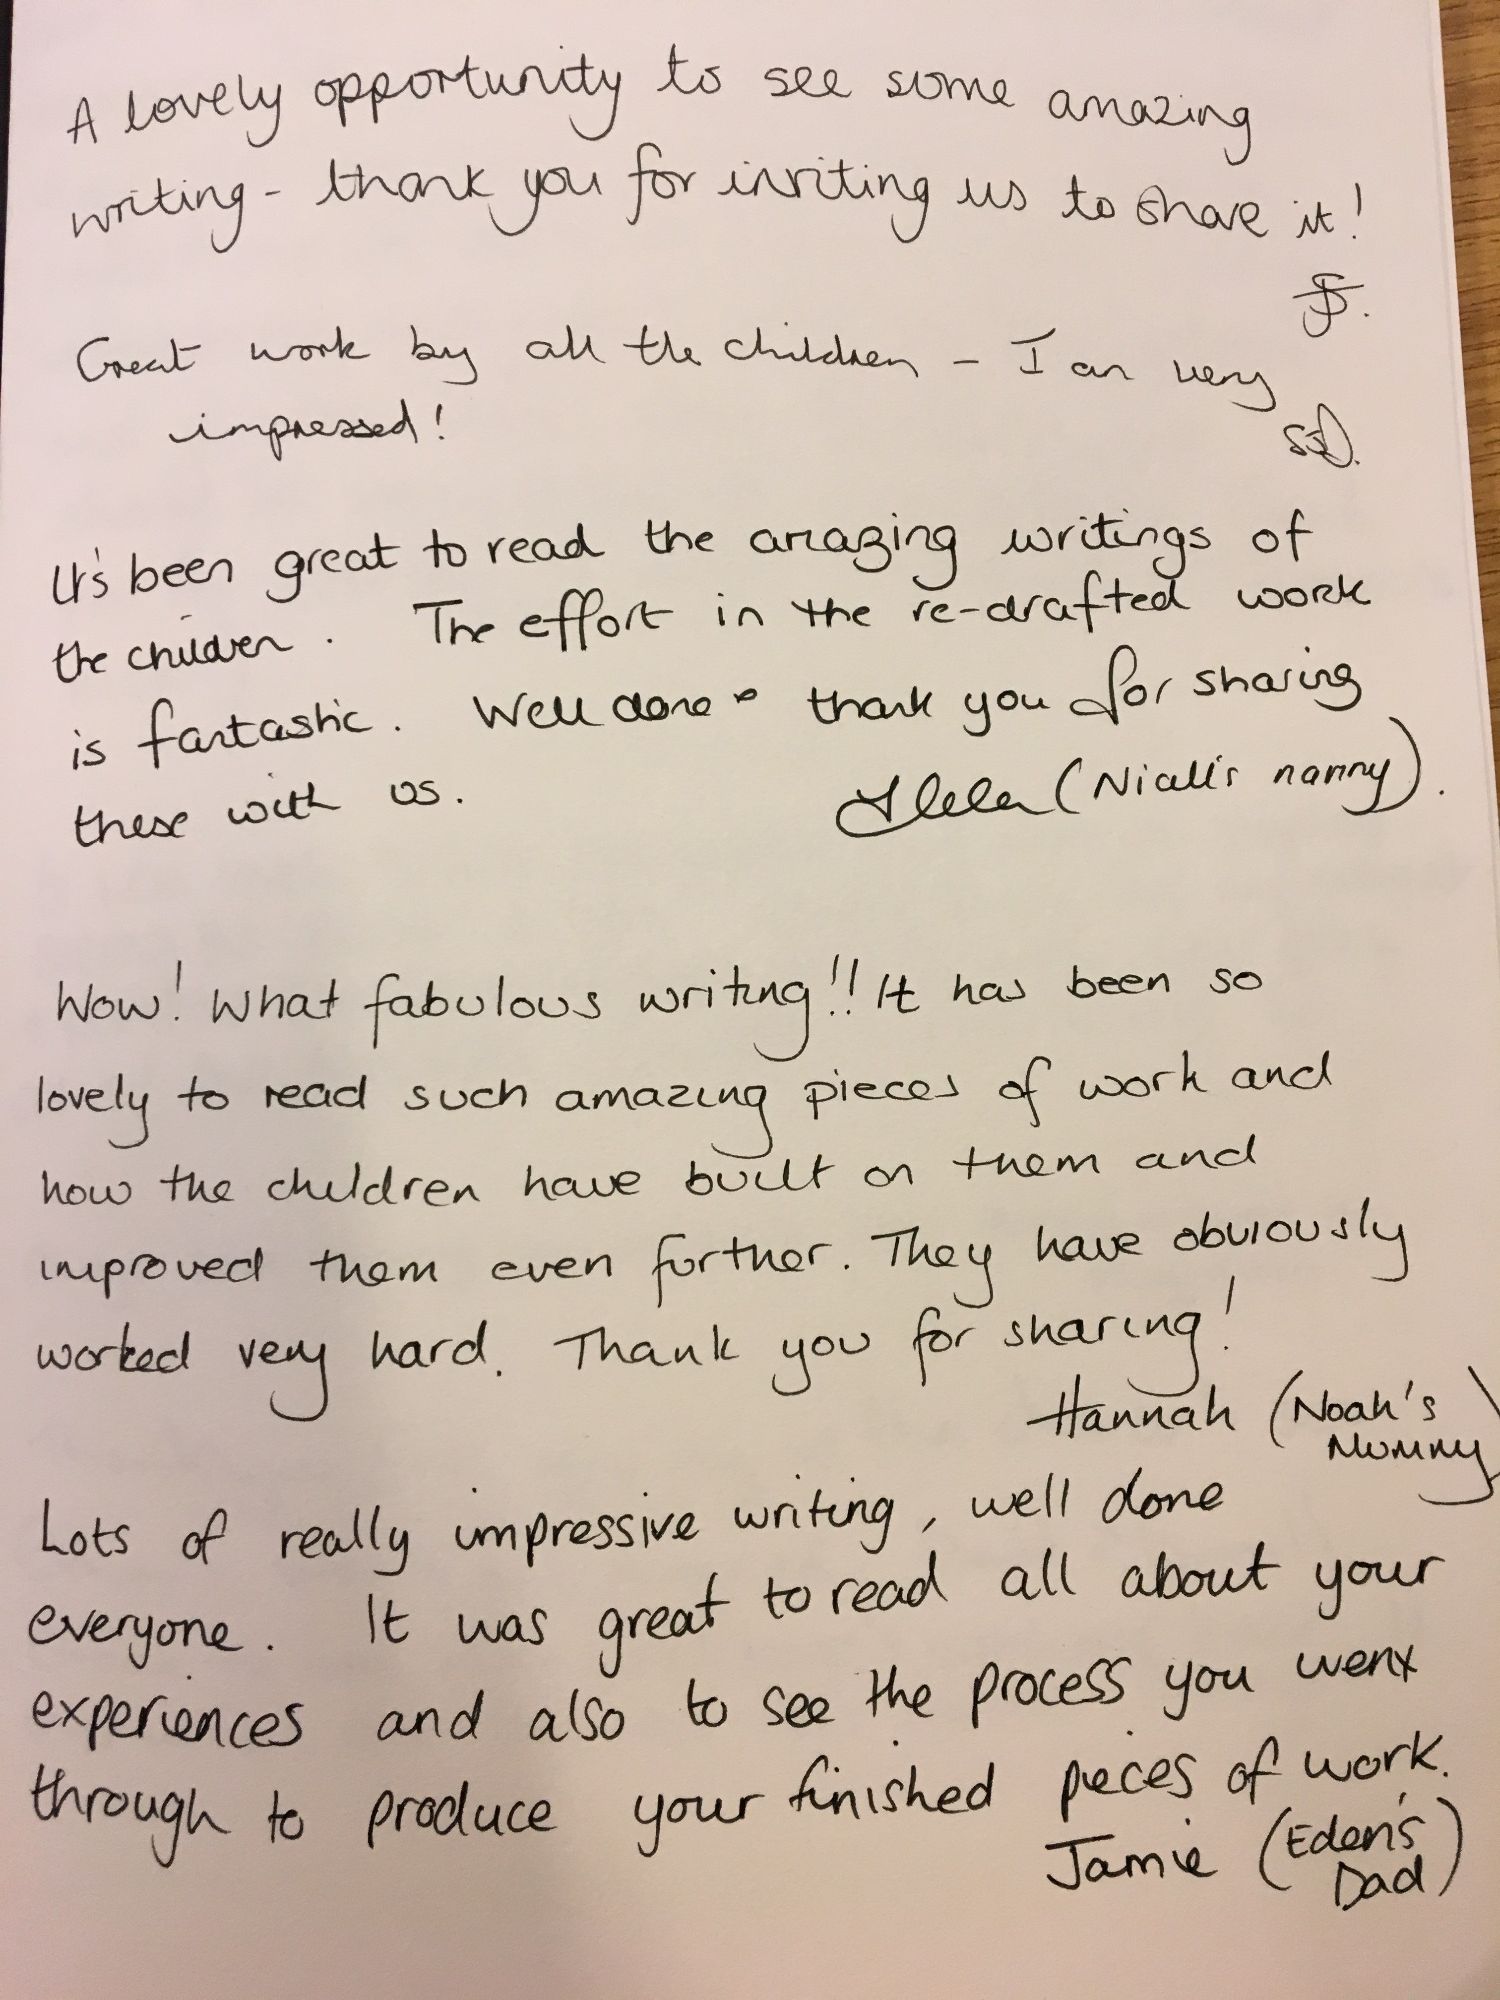 A lovely opportunity to see some amazing
writing - thank you for inviting us to share it!
Great work by all the children - I am very
impressed!
It's been great to read the amazing writings of
the children. The effort in the re-drafted work
is fantastic. Well done & thank you for sharing
these with us.
(Niall's nanny).
Wow! What fabulous writing!! It has been so
lovely to read such amazing pieces of work and
how the children have built on them and
improved them even further. They have obviously
worked very hard. Thank you for sharing!
Hannah (Noah's
Mummy)
Lots of really impressive writing, well done
everyone. It was great to read all about your
experiences and also to see the process you went
through to produce your finished pieces of work.
Jamie (Eden's
Dad)